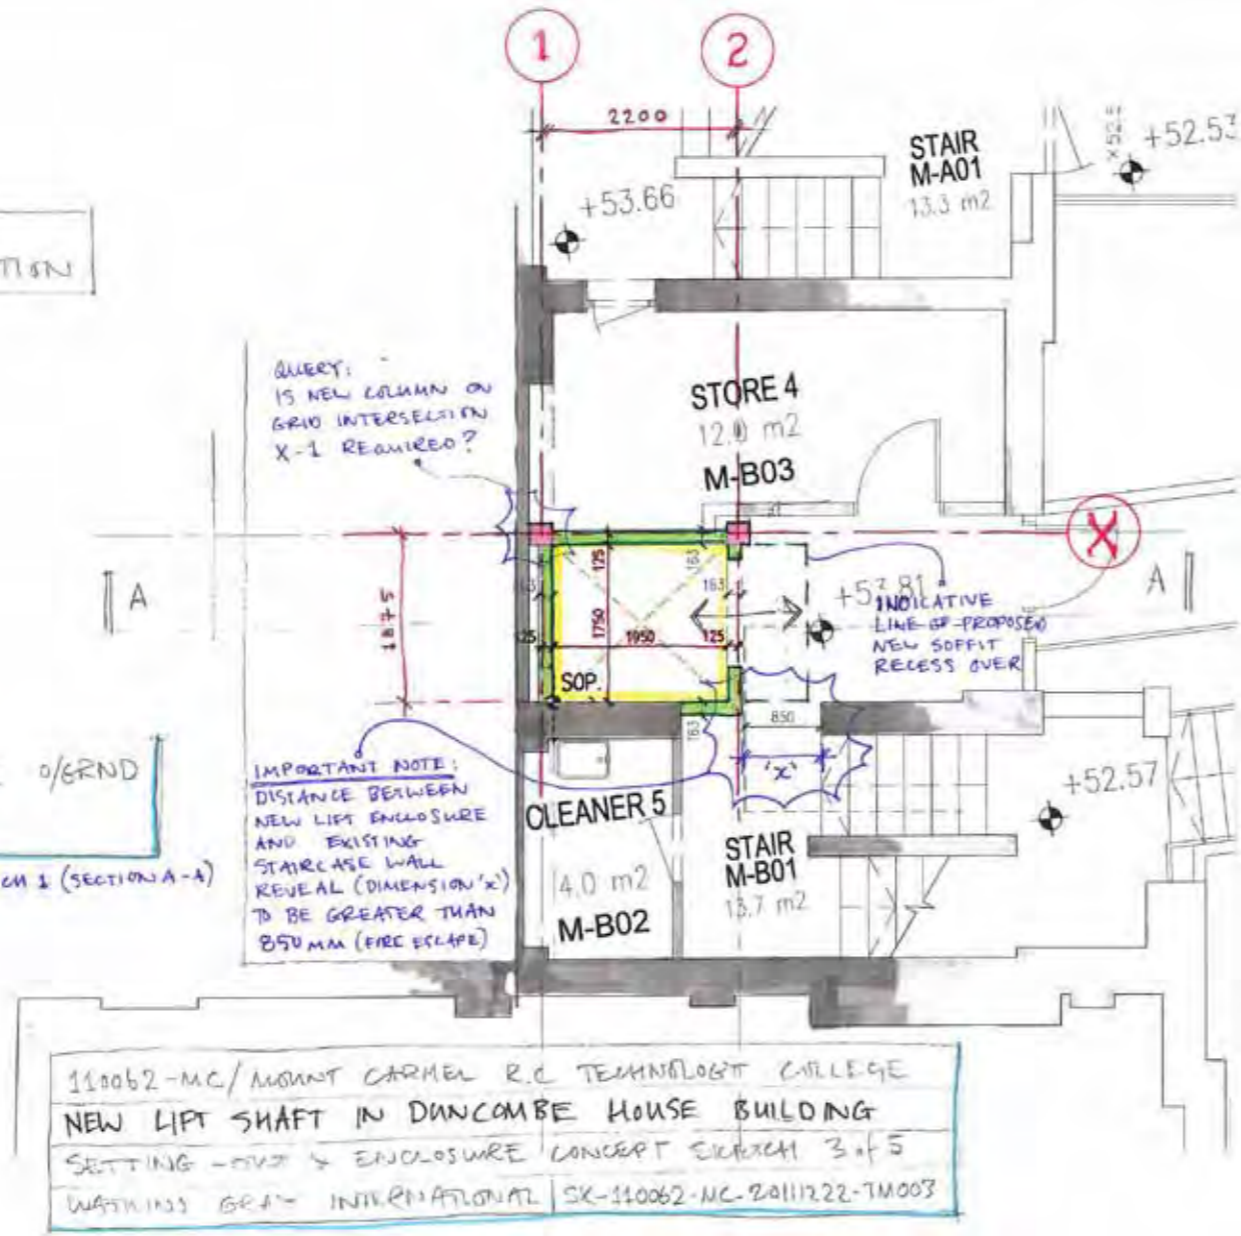 1
2
2200
STAIR
M-A01
13.3 m2
+52.53
+53.66
TION
QUERY:
IS NEW COLUMN ON
GRID INTERSECTION
X-1 REQUIRED?
STORE 4
12.0 m2
M-B03
X
A
A
1875
125
163
163
1750
1950
125
SOP.
163
850
'x'
+53.81
INDICATIVE
LINE OF PROPOSED
NEW SOFFIT
RECESS OVER
O/GRND
CH 1 (SECTION A-A)
IMPORTANT NOTE:
DISTANCE BETWEEN
NEW LIFT ENCLOSURE
AND EXISTING
STAIRCASE WALL
REVEAL (DIMENSION 'x')
TO BE GREATER THAN
850MM (FIRE ESCAPE)
CLEANER 5
4.0 m2
M-B02
STAIR
M-B01
13.7 m2
+52.57
110062-MC/MOUNT CARMEL R.C TECHNOLOGY COLLEGE
NEW LIFT SHAFT IN DUNCOMBE HOUSE BUILDING
SETTING-OUT & ENCLOSURE CONCEPT SKETCH 3 of 5
WATKINS GRAY INTERNATIONAL SK-110062-MC-20111222-TM003